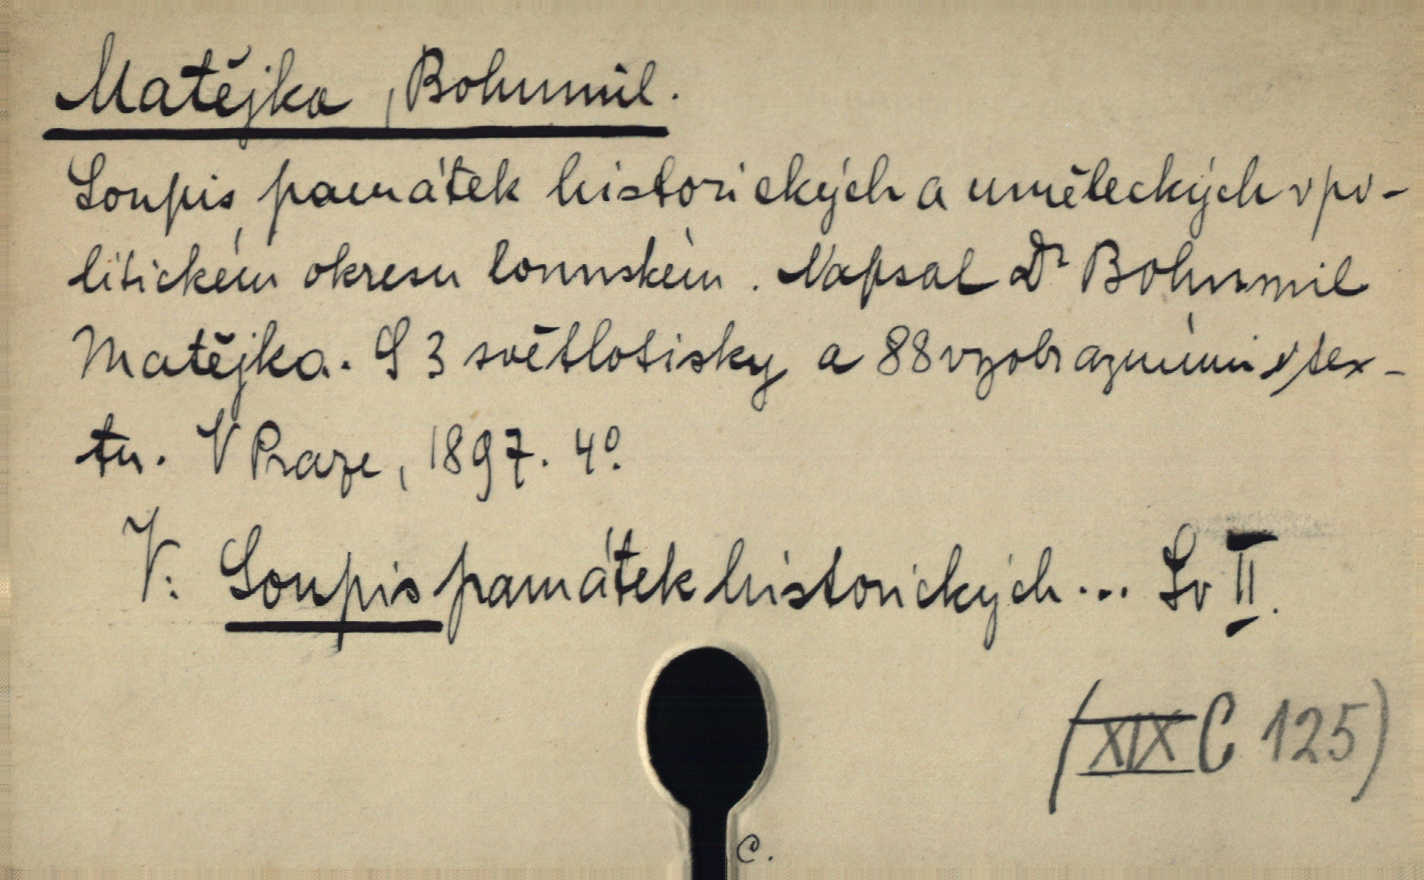 Matějka, Bohumil.
Soupis památek historických a uměleckých v po-
litickém okresu lounském. Napsal Dr Bohumil
Matějka. S 3 světlotisky a 88 vyobrazeními v tex-
tu. V Praze, 1897. 4º.
V: Soupis památek historických... Sv II.
(XIX C 125)
C.